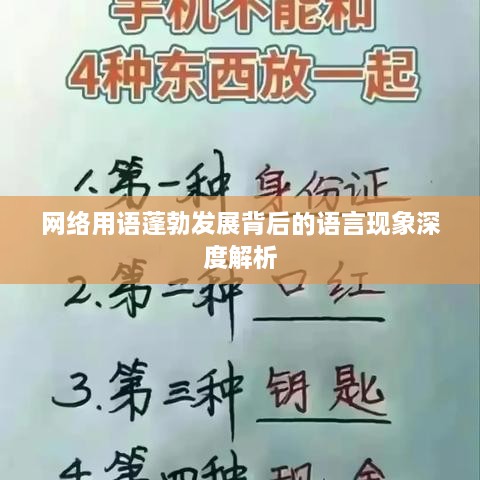 手机不能和
4种东西放一起
1.第一种 身份证
网络用语蓬勃发展背后的语言现象深
度解析
2.第二种 口红
3.第三种 钥匙
4.第四种 现金